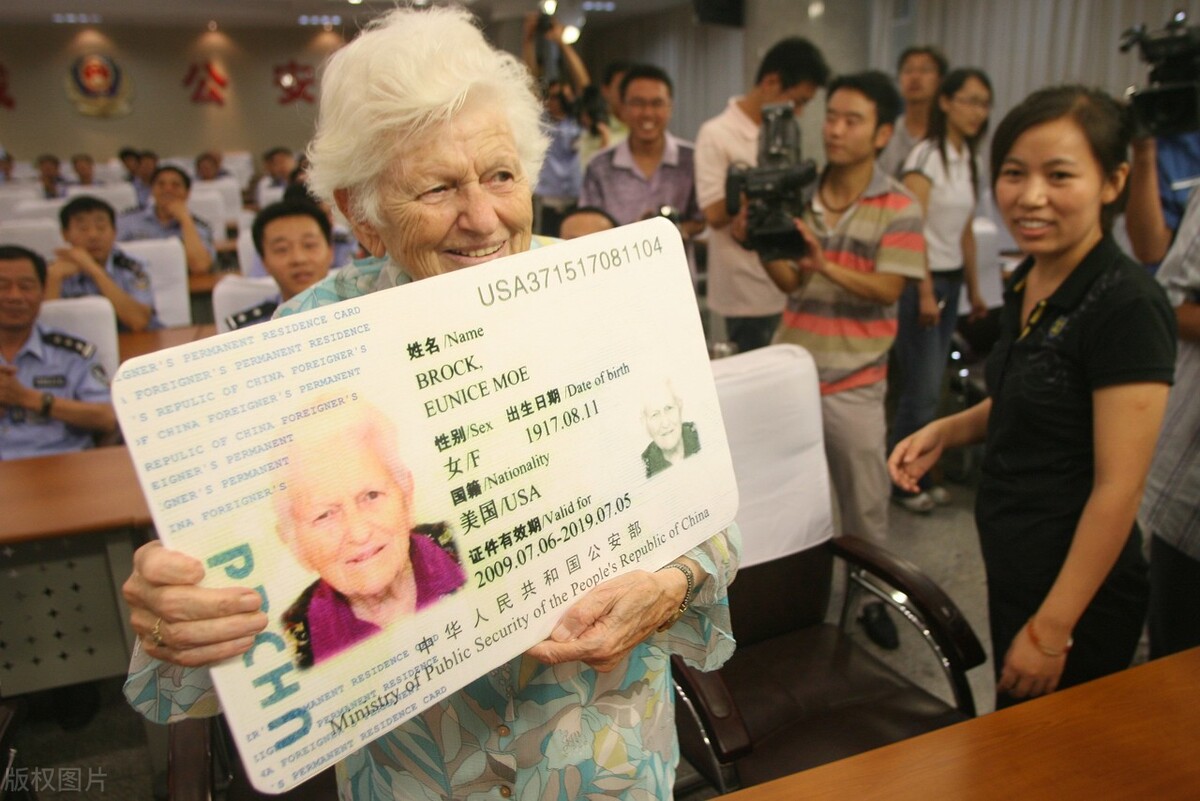 公 安
USA371517081104
IGNER'S PERMANENT RESIDENCE CARD
A FOREIGNER'S PERMANENT RESIDENCE
'S REPULIC OF CHINA FOREIGNER'S
OF CHINA FOREIGNER'S PERMANENT
REPULIC OF CHINA FOREIGNER'S
EIGNER'S PERMANENT
IGNER'S PERMANENT
INA FOREIGNER'S
姓名/Name
BROCK,
EUNICE MOE
性别/Sex 出生日期/Date of birth
女/F 1917.08.11
国籍/Nationality
美国/USA
证件有效期/Valid for
2009.07.06-2019.07.05
中华人民共和国公安部
Ministry of Public Security of the People's Republic of China
PRCHN
ER'S PERMANENT RESIDENCE CARD
EIGNER'S PERMANENT RESIDENCE
FOREIGNER'S PERMANENT RESIDENCE
'S PERMANENT RESIDENCE CARD
版权图片